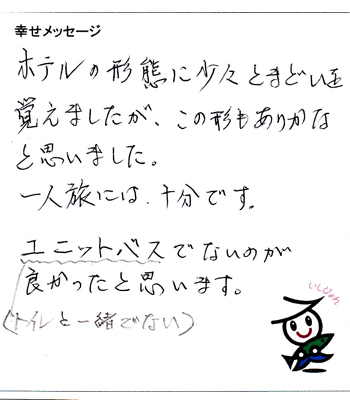 幸せメッセージ
ホテルの形態に少々とまどいを
覚えましたが、この形もありかな
と思いました。
一人旅には、十分です。
ユニットバスでないのが
良かったと思います。
(トイレと一緒でない)